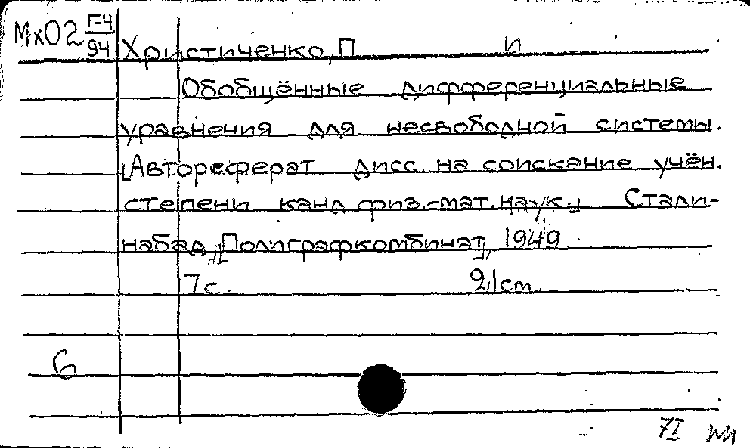 МхО2 Г-4
94
Христиченко, П И
Обобщённые дифференциальные
уравнения для несвободной системы.
[Автореферат дисс. на соискание учён.
степени канд. физ.-мат. наук.] Стали-
набад, "Полиграфкомбинат", 1949
7с. 21см
6